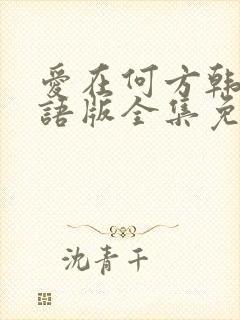 愛在何方韩
語版全集免
沈青干